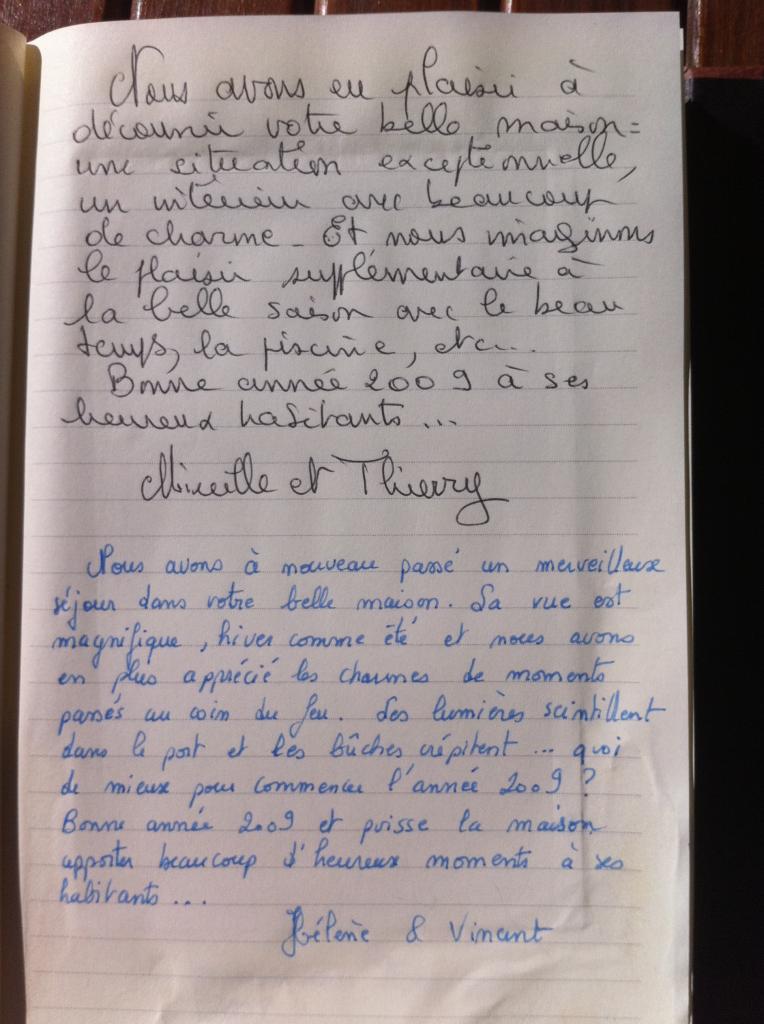 Nous avons eu plaisir à
découvrir votre belle maison :
une situation exceptionnelle,
un intérieur avec beaucoup
de charme - Et nous imaginons
le plaisir supplémentaire à
la belle saison avec le beau
temps, la piscine, etc...
Bonne année 2009 à ses
heureux habitants ...
Mireille et Thierry
Nous avons à nouveau passé un merveilleux
séjour dans votre belle maison. La vue est
magnifique, hiver comme été et nous avons
en plus apprécié les charmes de moments
passés au coin du feu. Les lumières scintillent
dans le port et les bûches crépitent ... quoi
de mieux pour commencer l'année 2009 ?
Bonne année 2009 et puisse la maison
apporter beaucoup d'heureux moments à ses
habitants ...
Hélène & Vincent